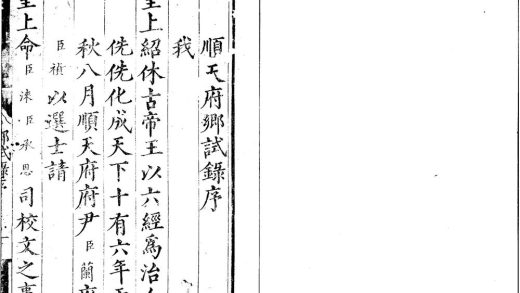 順天府鄉試錄序
我
皇上紹休古帝王以六經爲治
侁侁化成天下十有六年
秋八月順天府府尹臣蘭府
臣禎以選士請
皇上命臣涑臣承恩司校文之事